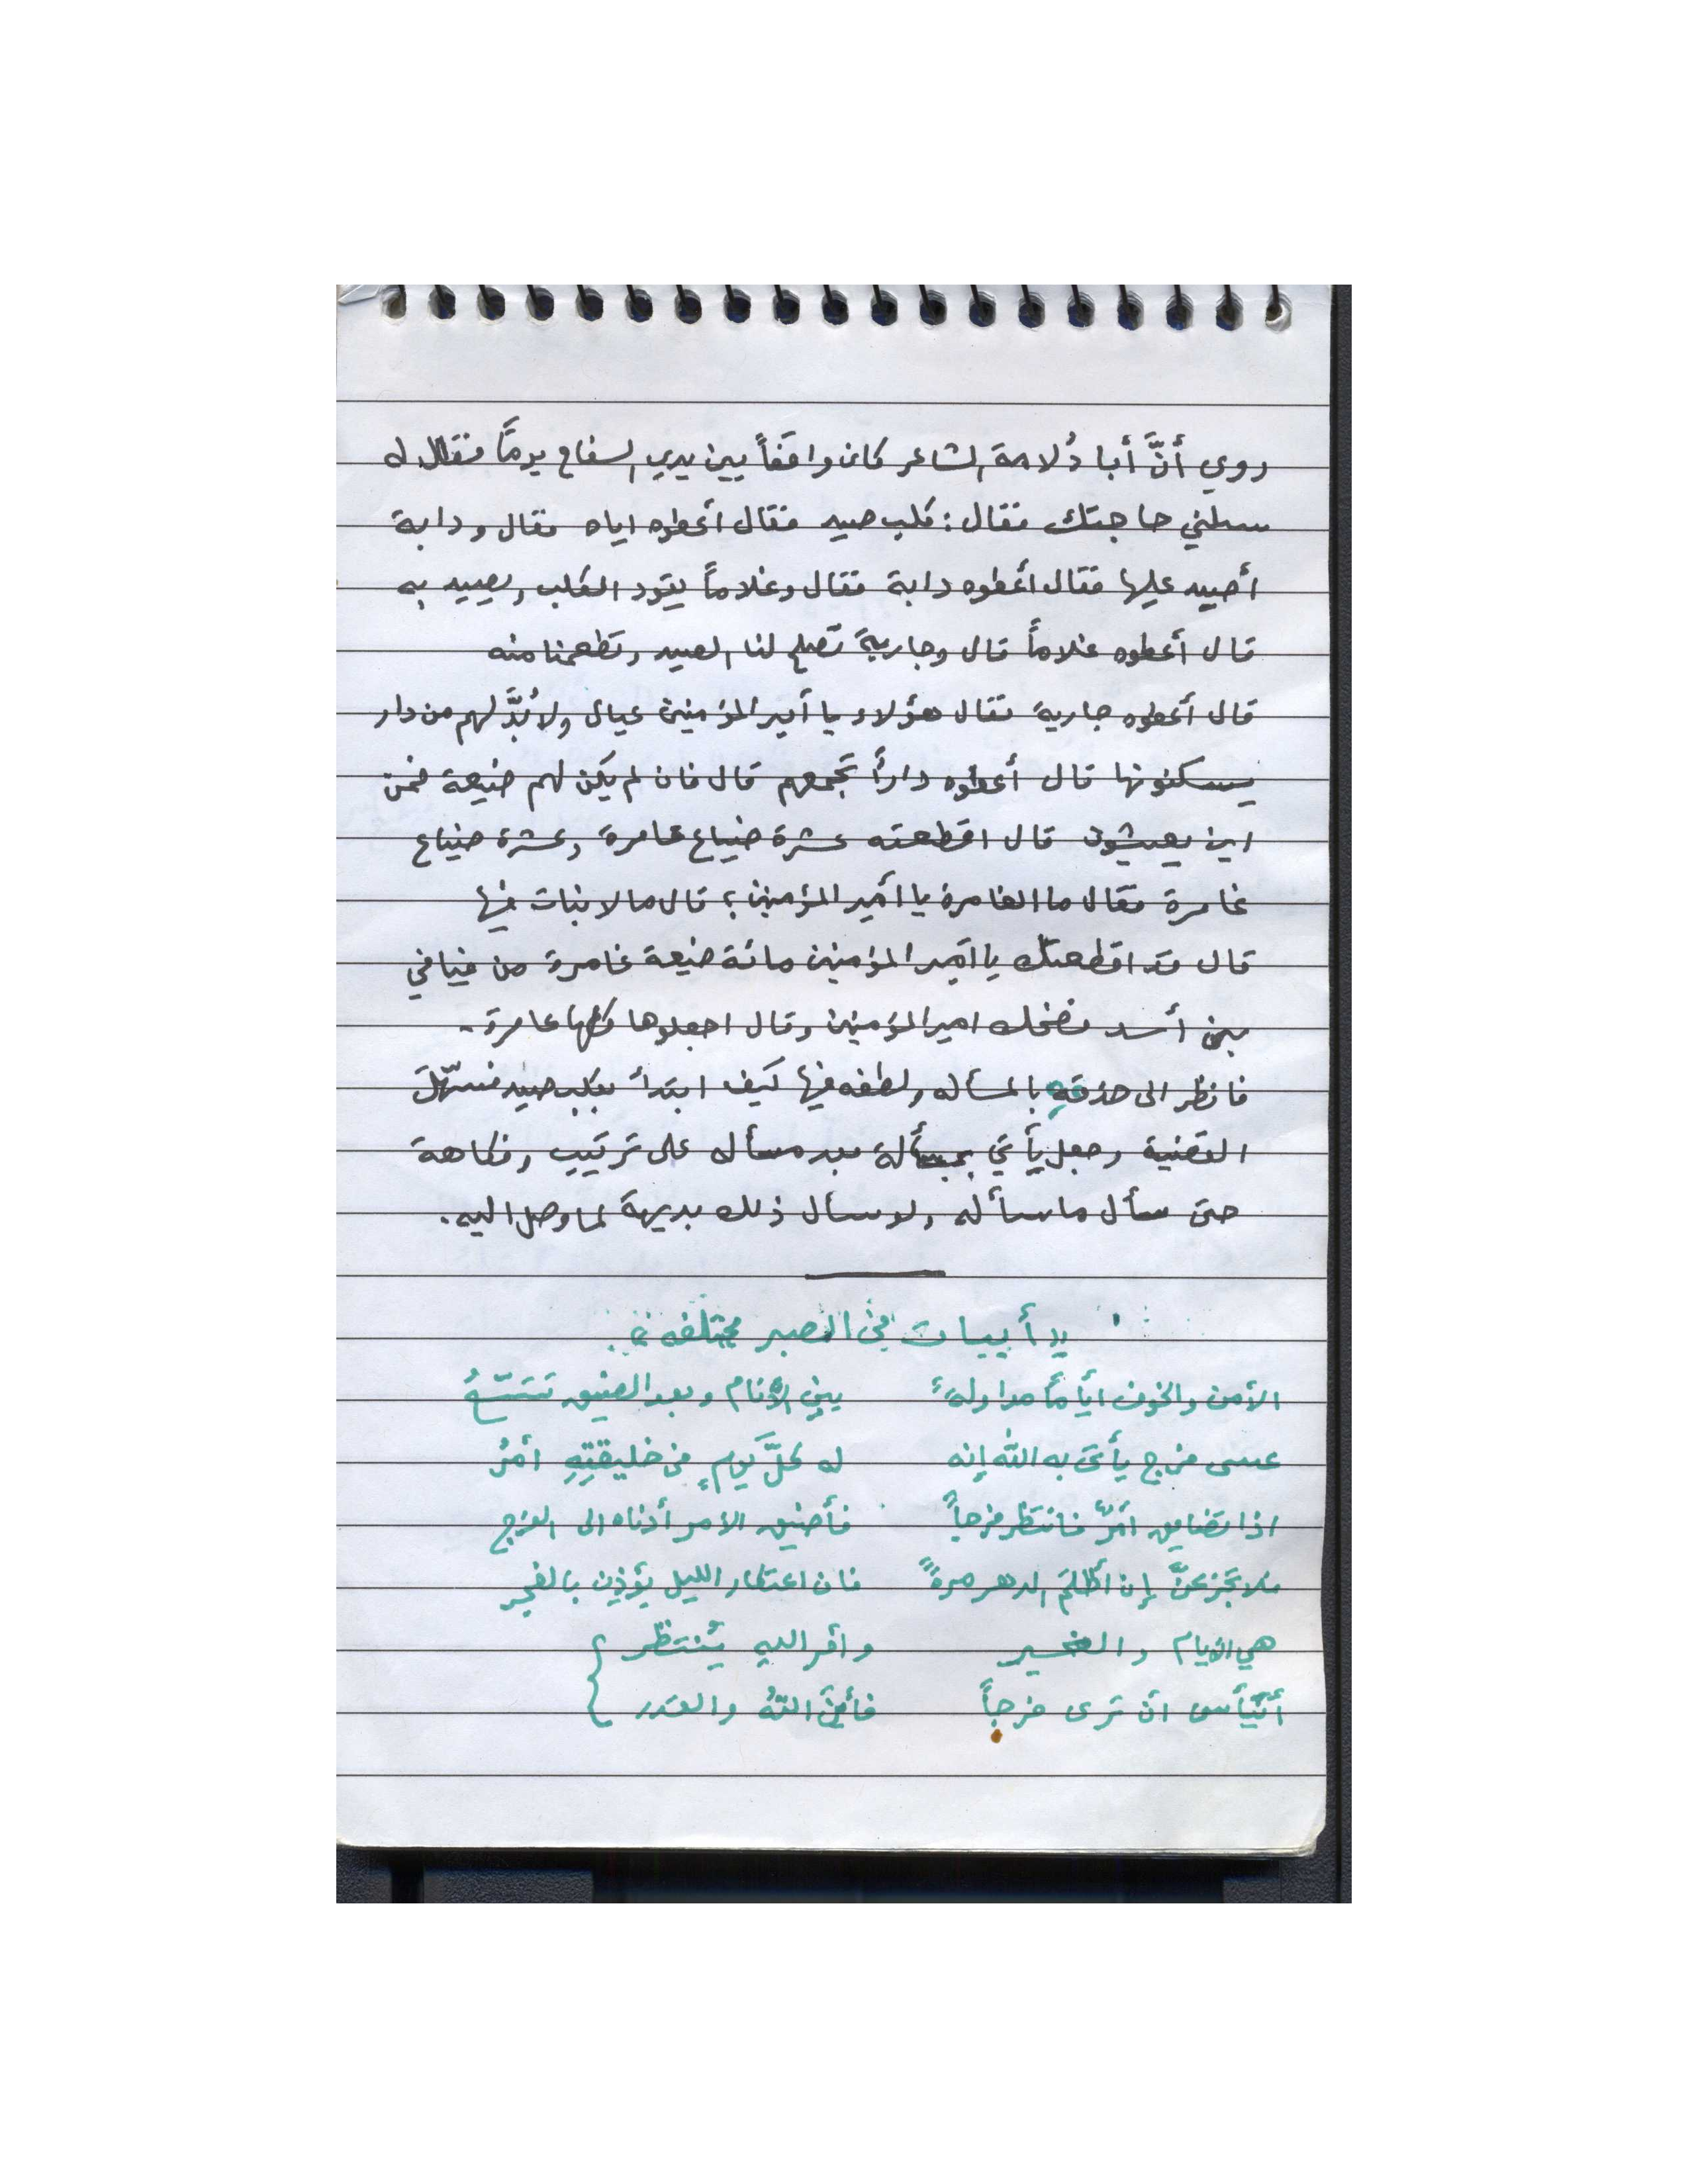 روي أنَّ أبا دُلامة الشاعر كان واقفاً بين يدي السفاح يوماً فقال له
سلني حاجتك فقال: كلب صيد فقال أعطوه اياه فقال ودابة
أصيد عليها فقال أعطوه دابة فقال وغلاماً يقود الكلب ويصيد به
قال أعطوه غلاماً قال وجاريةً تصلح لنا الصيد وتطعمنا منه
قال أعطوه جارية فقال هؤلاء يا أمير المؤمنين عيال ولا بُدَّ لهم من دار
يسكنونها قال أعطوه داراً تجمعهم قال فان لم يكن لهم ضيعة فمن
اين يعيشون قال اقطعته عشرة ضياع عامرة وعشرة ضياع
غامرة فقال ما الغامرة يا أمير المؤمنين؟ قال ما لا نبات فيها
قال قد اقطعتك يا امير المؤمنين مائة ضيعة غامرة من فيافي
بني أسد فضحك امير المؤمنين وقال اجعلوها كلها عامرة.
فانظر الى حذقهِ بالمسأله ولطفه فيها كيف ابتدأ بكلب صيد فسهّلَ
القضية وجعل يأتي بمسألة بعد مسأله على ترتيب وفكاهة
حتى سأل ما سأله ولو سأل ذلك بديهة لما وصل اليه.
أبيات في الصبر مختلفه
الأمن والخوف اياماً مداولهً بين الأنام وبعد الضيق تتسّعُ
عسى فرج يأتى به الله إنه له كلَّ يَومٍ في خليقتِهِ أمْرُ
اذا تضايق امرٌ فانتظر فرجاً فأضيق الامر أدناه الى الفرج
فلا تجزعنَّ إن أظلمَ الدهر مرةً فان اعتكار الليل يؤذن بالفجر
هي الايام والغير وأمر الله يُنتظر
أتيأس ان ترى فرجاً فأينَ اللهُ والقدر